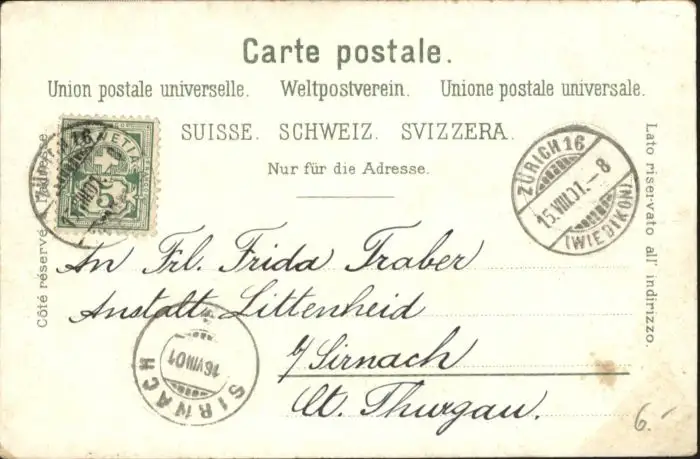 Carte postale.
Union postale universelle. Weltpostverein. Unione postale universale.
SUISSE. SCHWEIZ. SVIZZERA.
Nur für die Adresse.
Côté réservé à l'adresse
Lato riservato all' indirizzo.
HELVETIA
5
ZÜRICH 16
15.VIII.01.-8
(WIEDIKON)
An Frl. Frida Traber
Anstalt Littenheid
b/Sirnach
Ct. Thurgau.
16 VIII 01
SIRNACH
6.-